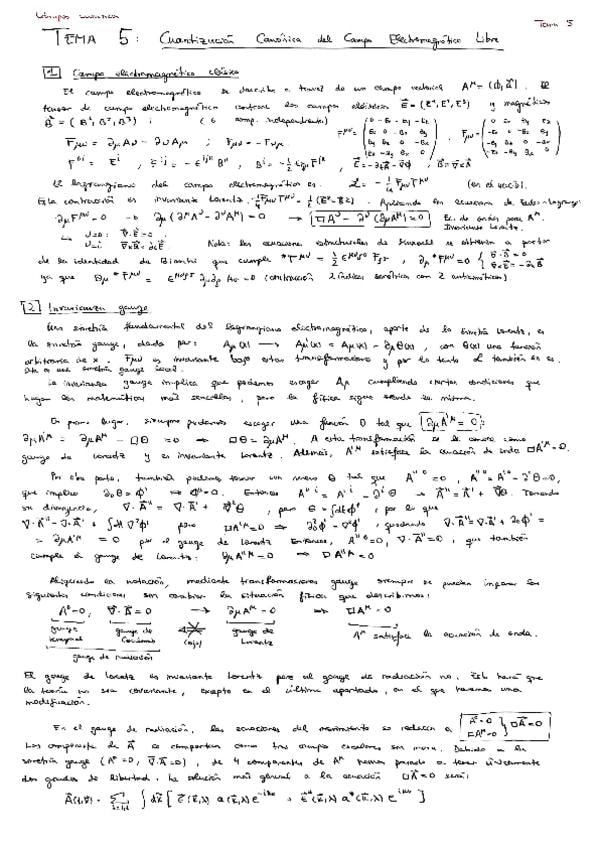 Campos cuánticos
Tema 5
TEMA 5: Cuantización Canónica del Campo Electromagnético Libre
1 Campo electromagnético clásico
El campo electromagnético se describe a través de un campo vectorial A^μ = (Φ, A⃗). El
tensor de campo electromagnético contiene los campos eléctricos E⃗ = (E¹, E², E³) y magnéticos
B⃗ = (B¹, B², B³) : (6 comp. independientes)
F_μν = ∂_μ A_ν - ∂_ν A_μ ; F_μν = -F_νμ
El lagrangiano del campo electromagnético es: ℒ = -1/4 F_μν F^μν (en el vacío).
Esta contracción es invariante Lorentz. Aplicando las ecuaciones de Euler-Lagrange:
∂_μ F^μν = 0 → ∂_μ (∂^μ A^ν - ∂^ν A^μ) = 0 → □A^ν - ∂^ν (∂_μ A^μ) = 0 Ec. de ondas para A^μ.
Invariante Lorentz.
Nota: las ecuaciones estructurales de Maxwell se obtienen a partir
de la identidad de Bianchi que cumple *F^μν = 1/2 ε^μνρσ F_ρσ, ∂_μ *F^μν = 0
ya que (contracción 2 índices simétricos con 2 antisimétricos).
2 Invarianza gauge
Una simetría fundamental del lagrangiano electromagnético, aparte de la simetría Lorentz, es
la simetría gauge, dada por: A_μ(x) → A'_μ(x) = A_μ(x) - ∂_μ θ(x), con θ(x) una función
arbitraria de x. F_μν es invariante bajo estas transformaciones y por lo tanto ℒ también es es.
Ésta es una simetría gauge local.
La invarianza gauge implica que podemos escoger A_μ cumpliendo ciertas condiciones que
hagan las matemáticas más sencillas, pero la física sigue siendo la misma.
En primer lugar, siempre podemos escoger una función θ tal que ∂_μ A'^μ = 0:
∂_μ A'^μ = ∂_μ A^μ - □θ = 0 → □θ = ∂_μ A^μ. A esta transformación se le conoce como
gauge de Lorentz y es invariante Lorentz. Además, A'^μ satisface la ecuación de onda □A'^μ = 0.
Por otra parte, también podemos tomar un nuevo θ tal que A''^0 = 0, A''^0 = A'^0 - ∂^0 θ = 0,
que implica ∂_0 θ = Φ' Entonces A''^i = A'^i - ∂^i θ → A⃗'' = A⃗' + ∇⃗θ. Tomando
su divergencia, ∇·A⃗'' = ∇·A⃗' + ∇²θ, pero θ = ∫dt Φ', por lo que
∇·A⃗'' = ∇·A⃗' + ∫dt ∇²Φ' pero □A'^μ = 0 → ∂_0²Φ' = ∇²Φ', quedando ∇·A⃗'' = ∇·A⃗' + ∂_0 Φ' =
= ∂_μ A'^μ = 0 por el gauge de Lorentz. Entonces, A''^0 = 0, ∇·A⃗'' = 0, que también
cumple el gauge de Lorentz: ∂_μ A''^μ = 0 → □A''^μ = 0
Aligerando la notación, mediante transformaciones gauge siempre se pueden imponer las
siguientes condiciones sin cambiar la situación física que describimos:
A^0 = 0, ∇⃗·A⃗ = 0 → ∂_μ A^μ = 0 → □A^μ = 0
gauge temporal
gauge de Coulomb
(ojo)
gauge de Lorentz
A^μ satisface la ecuación de onda.
gauge de radiación
El gauge de Lorentz es invariante Lorentz pero el gauge de radiación no. Esto hará que
la teoría no sea covariante, excepto en el último apartado, en el que haremos una
modificación.
En el gauge de radiación, las ecuaciones del movimiento se reducen a A^0 = 0 □A^μ = 0 } □A⃗ = 0
Las componentes de A⃗ se comportan como tres campos escalares sin masa. Debido a la
simetría gauge (A^0 = 0, ∇⃗·A⃗ = 0), de 4 componentes de A^μ hemos pasado a tener únicamente
dos grados de libertad. La solución más general a la ecuación □A⃗ = 0 será:
A⃗(t,x⃗) = Σ ∫dk̃ [ε⃗(k⃗,λ) a(k⃗,λ) e^{-ikx} + ε⃗*(k⃗,λ) a*(k⃗,λ) e^{ikx}]